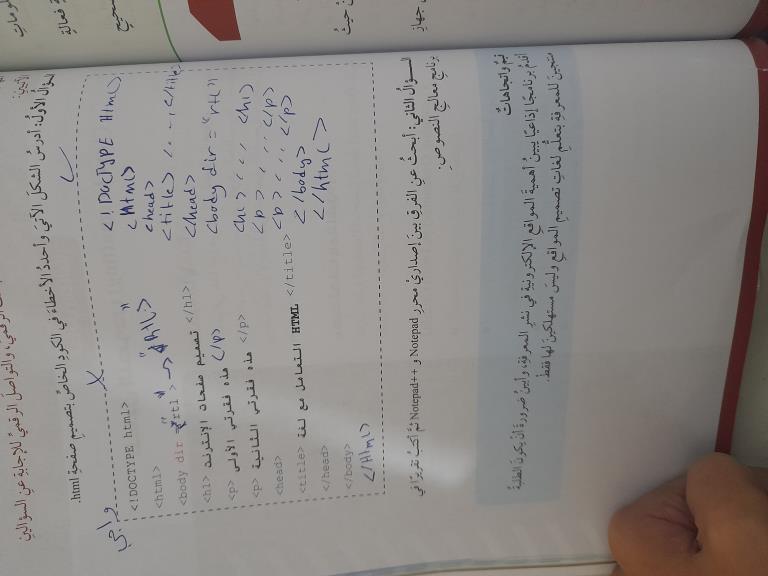 الرقمي، والتواصل الرقمي للإجابة عن السؤالين
السؤال الأول: أدرس الشكل الآتي وأحدد الأخطاء في الكود الخاص بتصميم صفحة html.
واجب
X
<!DOCTYPE html>
<html>
<body dir = rtl > → "rtl:"
<h1> تصميم صفحات الإنترنت </h1>
<p> هذه فقرتي الأولى </p>
<p> هذه فقرتي الثانية </p>
<head>
<title> التعامل مع لغة HTML </title>
</head>
</body>
</Html>
✓
<!DOCTYPE Html>
<Html>
<head>
<title> . . . </title>
</head>
<body dir = "rtl">
<h1> . . . <h1>
<p> . . . </p>
<p> . . . </p>
</body>
</html>
السؤال الثاني: أبحث عن الفرق بين إصداري محرر Notepad و Notepad++ ثم أكتب تقريرًا في
برنامج معالج النصوص.
قيم واتجاهات
أقدم برنامجًا إذاعيًا يبين أهمية المواقع الإلكترونية في نشر المعرفة، وأبين ضرورة أن يكون الطلبة
منتجين للمعرفة بتعلم لغات تصميم المواقع وليس مستهلكين لها فقط.